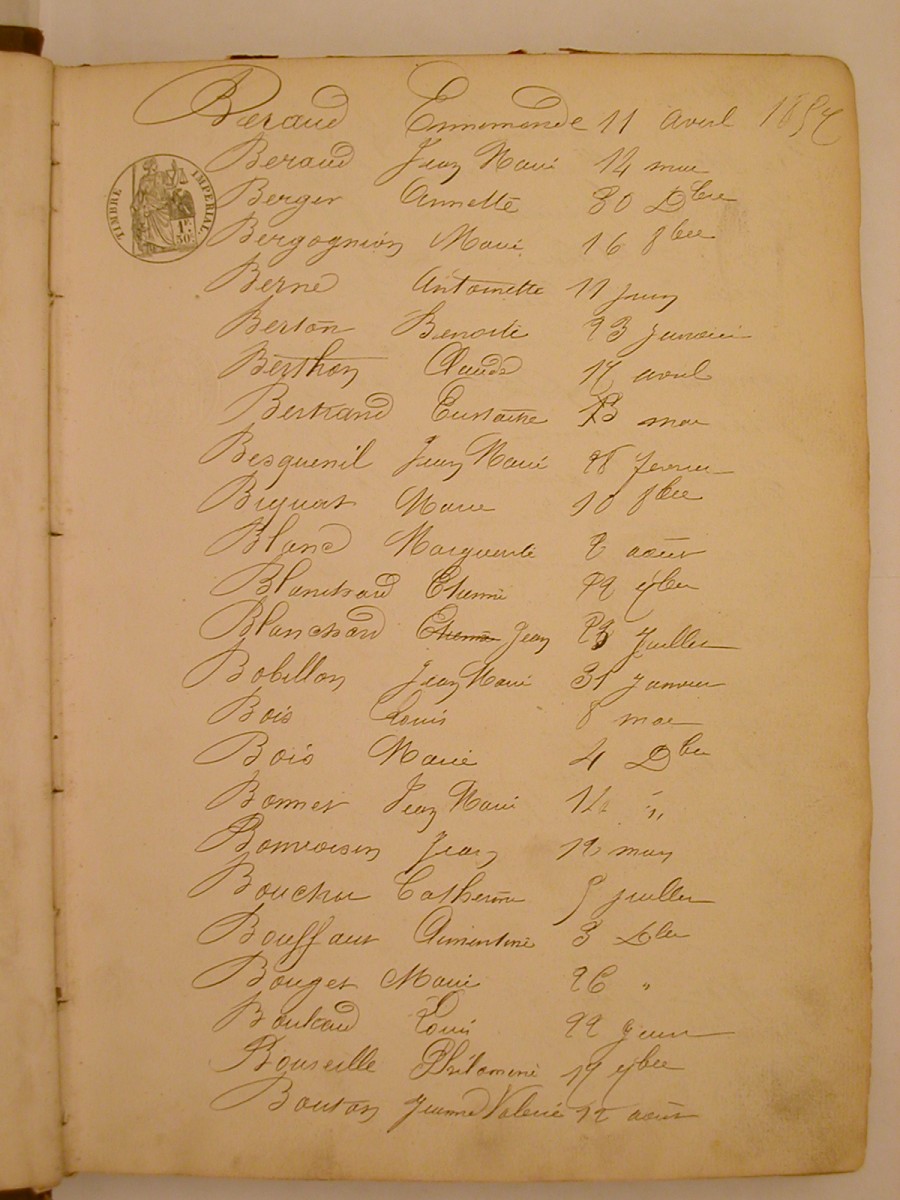 Béraud Ennemonde 11 avril 1857
TIMBRE IMPÉRIAL.
1F. 50c.
Beraud Jean Marie 14 mai
Berger Annette 30 Dbre
Bergognion Marie 16 8bre
Berne Antoinette 11 juin
Berton Benoite 23 janvier
Berthon Claude 17 avril
Bertrand Eustache 13 mai
Besquenil Jean Marie 28 fevrier
Biquat Marie 10 8bre
Blanc Marguerite 2 août
Blanchard Etienne 22 9bre
Blanchard Etienne Jean 23 Juillet
Bobillon Jean Marie 31 Janvier
Bois Louis 8 mai
Bois Marie 4 Dbre
Bonnet Jean Marie 14 "
Jean 12 mars
Bouchu Catherine 5 juillet
Bouffaut 3 Dbre
Bouget Marie 26 "
Boutaud Louis 22 juin
Bourseille Philomène 19 9bre
Bouton Jeanne Valerie 12 août